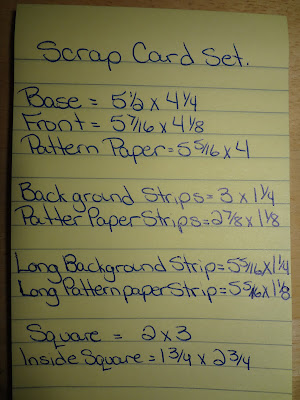 Scrap Card Set.
Base = 5 1/2 x 4 1/4
Front = 5 7/16 x 4 1/8
Pattern Paper = 5 5/16 x 4
Background Strips = 3 x 1 1/4
Patter Paper Strips = 2 7/8 x 1 1/8
Long Background Strip = 5 5/16 x 1 1/4
Long Pattern paper Strip = 5 5/16 x 1 1/8
Square = 2 x 3
Inside Square = 1 3/4 x 2 3/4